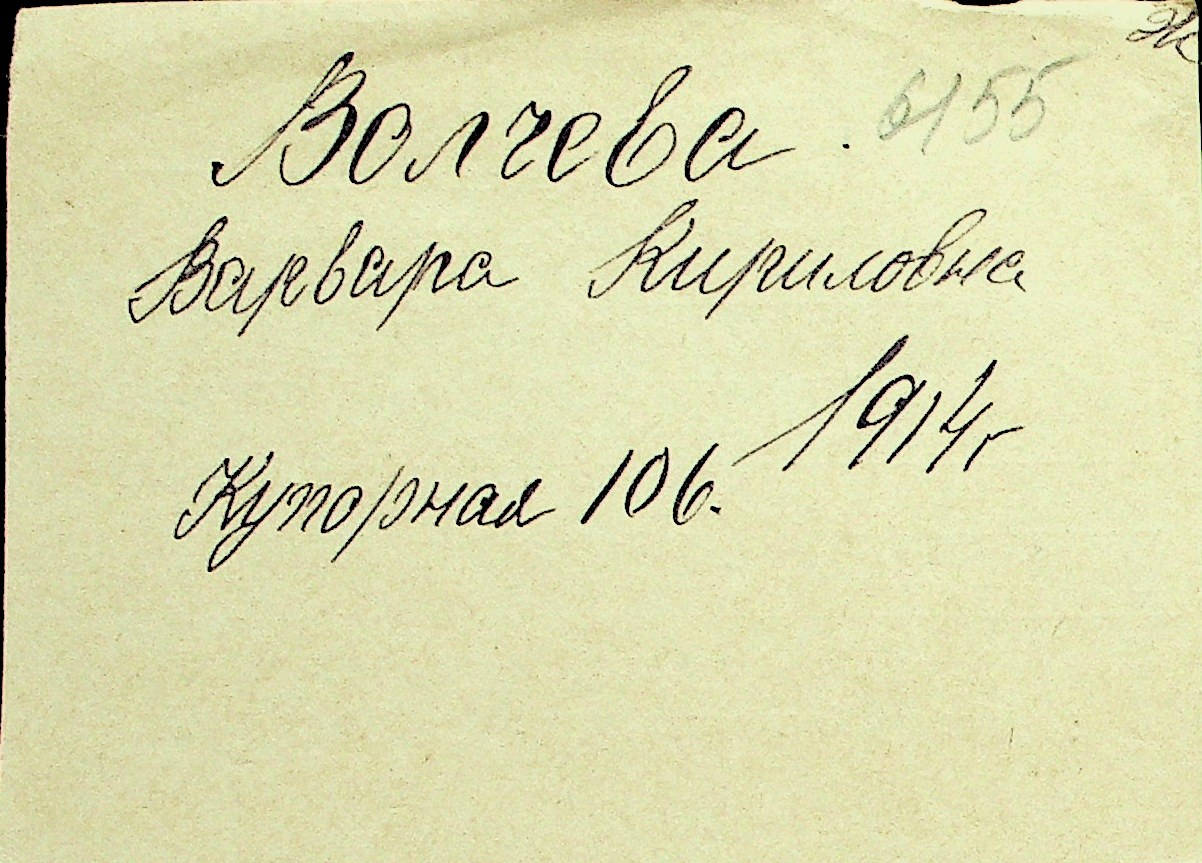 Ж
Волчева. 6155
Варвара Кириловна
1914г
Купорная 106.